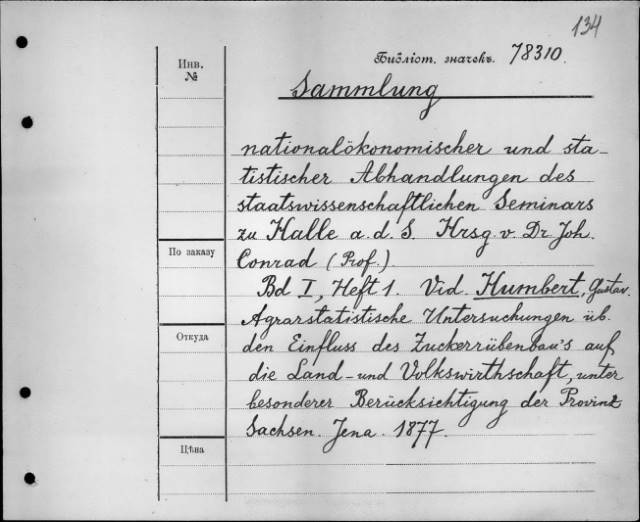 134
Инв. №
Библіот. значекъ. 78310.
Sammlung
nationalökonomischer und sta-
tistischer Abhandlungen des
staatswissenschaftlichen Seminars
zu Halle a. d. S. Hrsg. v. Dr. Joh.
По заказу
Conrad (Prof.)
Bd I, Heft 1. Vid. Humbert, Gustav.
Agrarstatistische Untersuchungen üb.
Откуда
den Einfluss des Zuckerrübenbau's auf
die Land- und Volkswirthschaft, unter
besonderer Berücksichtigung der Provinz
Sachsen. Jena. 1877.
Цѣна